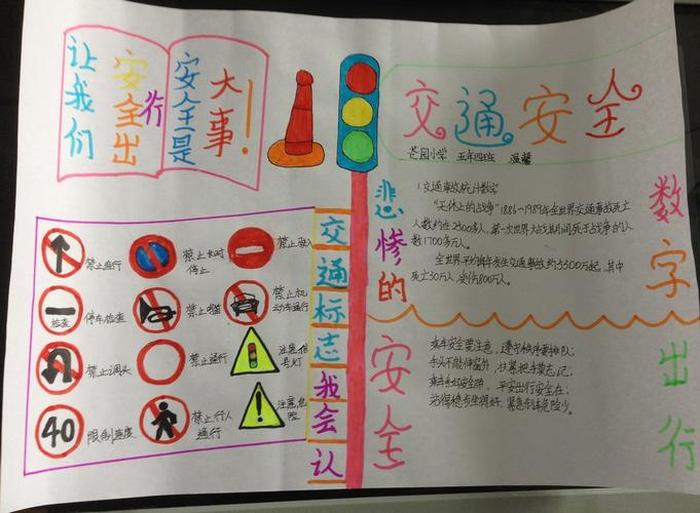 让我们
安全出行
安全是
大事！
交通安全
芒园小学 五年四班 温馨
悲惨的
数字
1.交通事故统计数字
"无休止的战争"1886~1989年全世界交通事故死亡
人数约在2300多人，第一次世界大战期间死于战争的人
数1700多万人。
全世界平均每年发生交通事故约3300万起，其中
死亡30万人，受伤800万人。
安全
出行
乘车安全要注意，遵守秩序要排队；
手头不能伸窗外，扶紧把手莫忘记；
交通标志我会认
禁止直行
禁止长时
停止
禁止驶入
检查
停车检查
禁止鸣喇
禁止机
动车通行
禁止调头
禁止通行
注意信
号灯
40
限制速度
禁止行人
通行
注意危
险